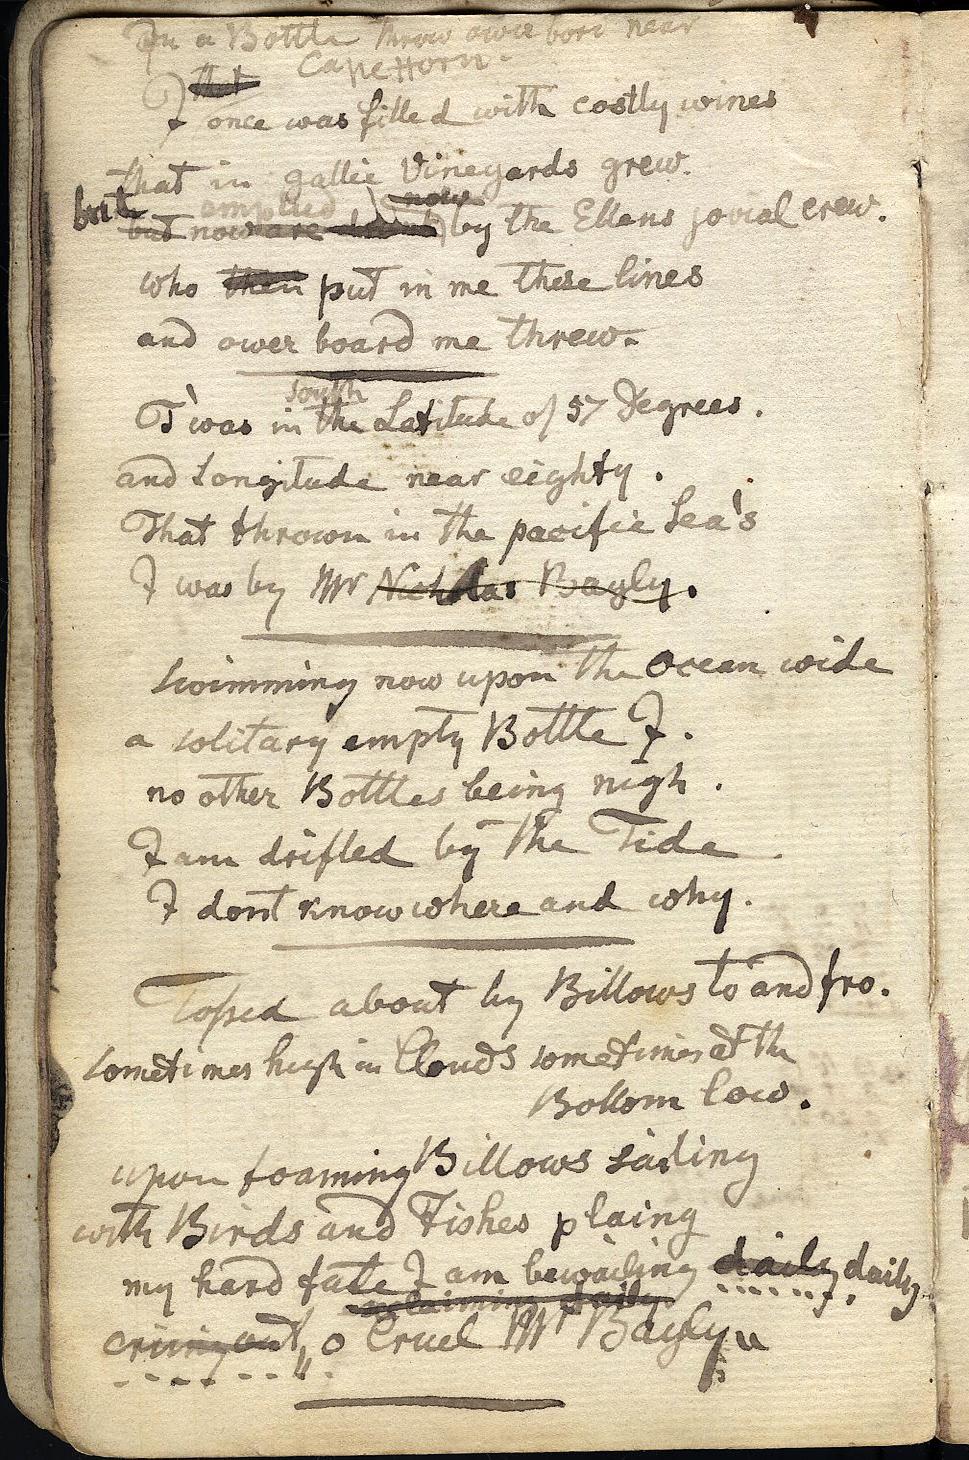 In a Bottle throw ower bord near
Cape Horn.
that
I once was filled with costly wines
that in gallic Vineyards grew.
emptied now
but but now are drunk by the Ellens jovial crew.
who then put in me these lines
and ower board me threw.
south
T'was in the Latitude of 57 Degrees.
and Longitude near eighty.
That thrown in the pacific Sea's
I was by Mr Nicholas Bayly.
swimming now upon the Ocean wide
a solitary empty Bottle I.
no other Bottles being nigh.
I am drifted by the Tide
I dont know where and why.
Tossed about by Billows to and fro.
sometimes high in Clouds sometimes at the
Bottom low.
upon foaming Billows sailing
with Birds and Fishes plaing
my hard fate I am bewailing daily daily
exclaiming daily.
criing out, „o Cruel Mr Bayly"